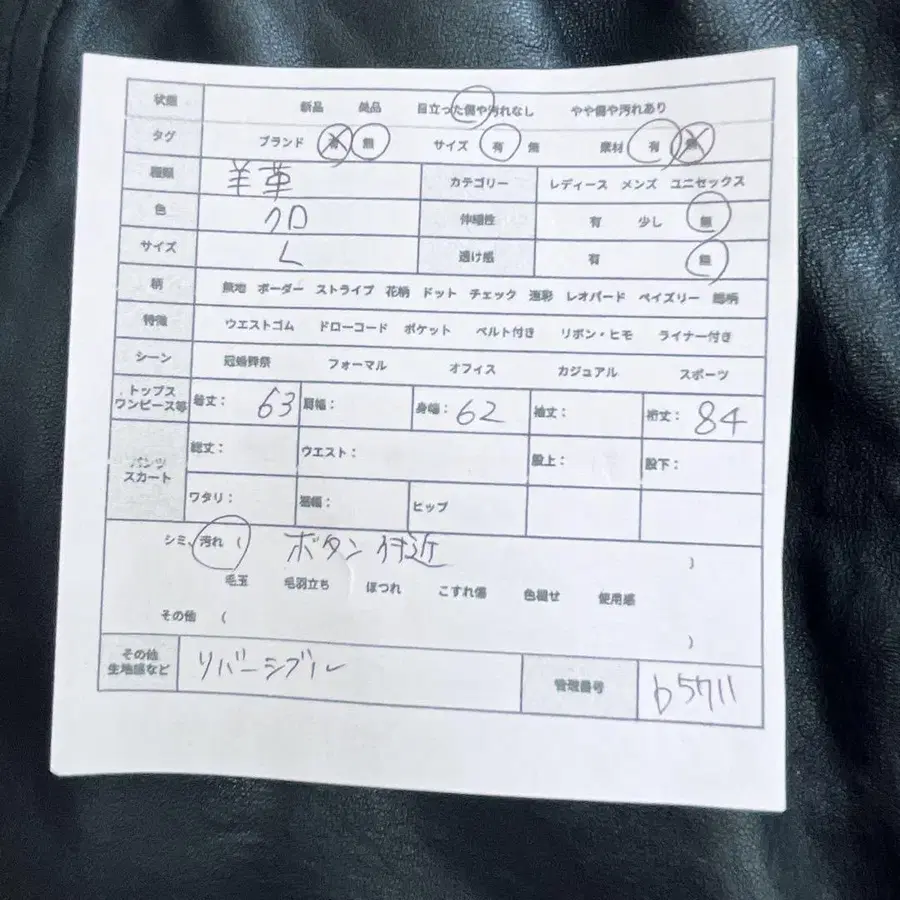 状態 新品 美品 目立った傷や汚れなし やや傷や汚れあり
タグ ブランド 有 無 サイズ 有 無 素材 有 無
種類 羊革 カテゴリー レディース メンズ ユニセックス
色 クロ 伸縮性 有 少し 無
サイズ L 透け感 有 無
柄 無地 ボーダー ストライプ 花柄 ドット チェック 迷彩 レオパード ペイズリー 総柄
特徴 ウエストゴム ドローコード ポケット ベルト付き リボン・ヒモ ライナー付き
シーン 冠婚葬祭 フォーマル オフィス カジュアル スポーツ
トップス
ワンピース等 着丈: 63 肩幅: 身幅: 62 袖丈: 裄丈: 84
パンツ
スカート
総丈: ウエスト: 股上: 股下:
ワタリ: 裾幅: ヒップ
シミ、汚れ ( ボタン付近 )
毛玉 毛羽立ち ほつれ こすれ傷 色褪せ 使用感
その他 ( )
その他
生地感など リバーシブル 管理番号 b5711